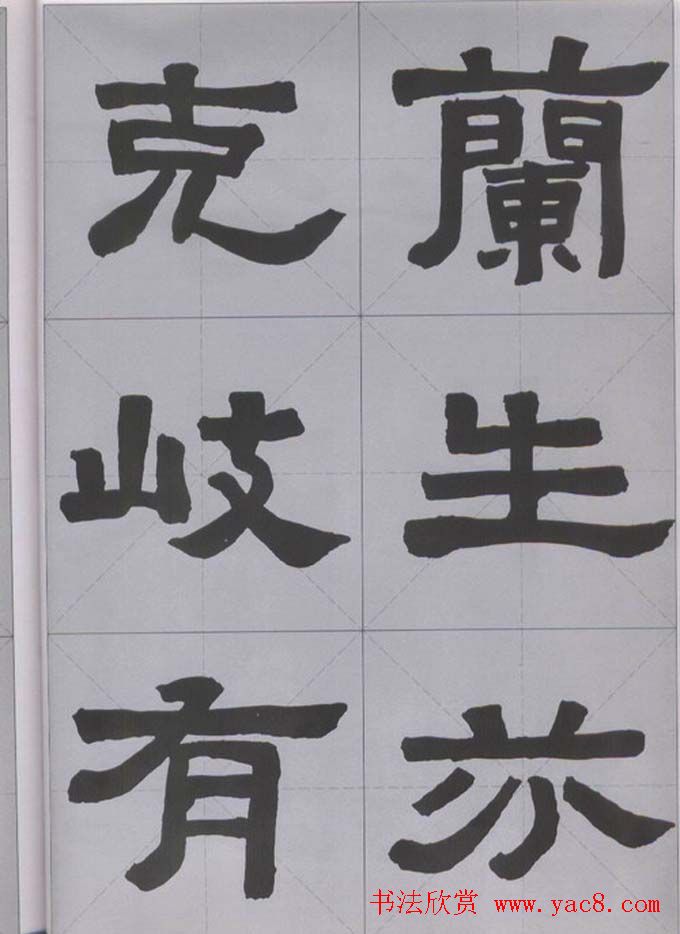 蘭生亦
克岐有
书法欣赏 www.yac8.com